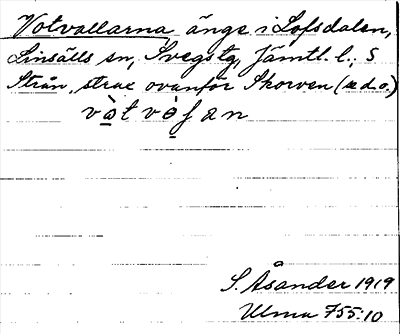 Votvallarna änge i Lofsdalen,
Linsälls sn, Svegs tg, Jämtl. l.; S
Strån, strax ovanför Skorven (se d.o.)
S. Åsander 1919
Ulma 755:10